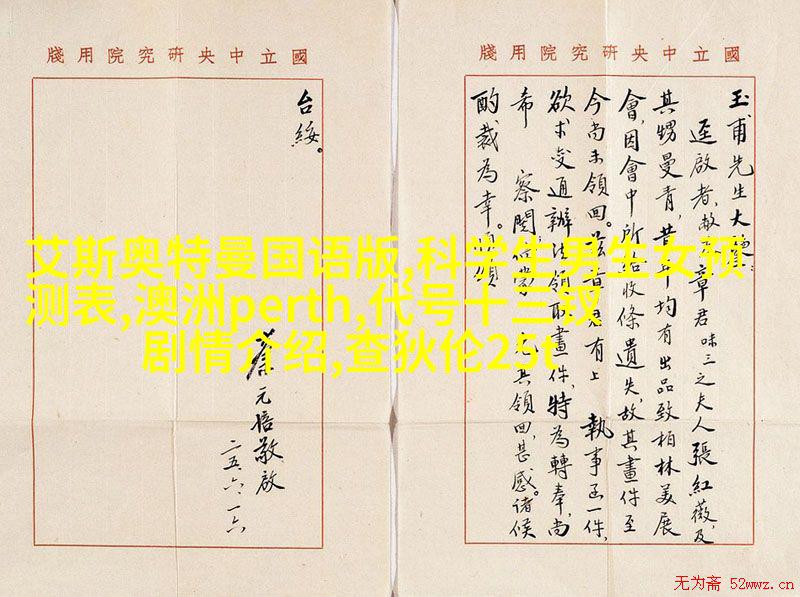 國立中央研究院用牋
玉甫先生大鑒:
逕啟者,敝友章君味三之夫人張紅薇,及
其甥曼青,昔年均有出品致柏林美展
會,因會中所給收條遺失,故其畫件至
今尚未領回。茲章君有上 執事函一件,
欲求变通辦法領取畫件,特為轉奉,尚
希 察閱倘蒙 允其領回,甚感。諸候
酌裁為幸。順頌
國立中央研究院用牋
台綏。
蔡元培敬啟
二五、六、一六
艾斯奥特曼国语版,科学生男生女预
测表,澳洲perth,代号十三钗
剧情介绍,查狄伦25t
无为斋 52wwz.cn